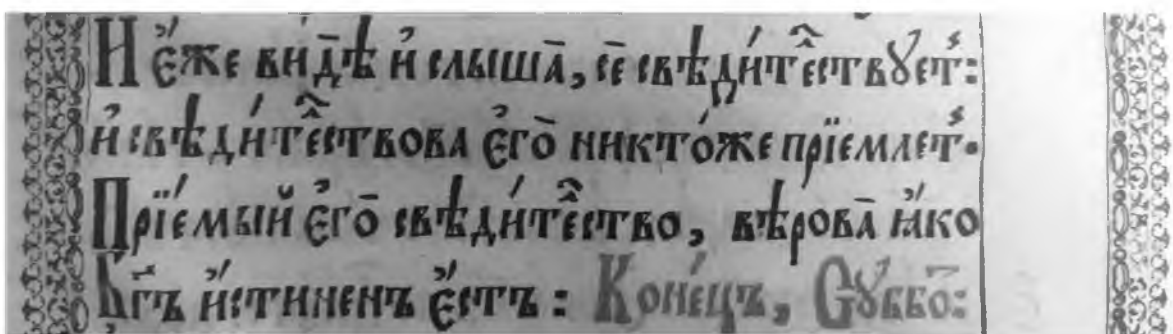 И є҆́же ви́дѣ и҆ слыша̄, се свѣди́те́ствꙋет:
и҆ свѣди́те́ствова є҆го̄ никто́же прїемлет.
Прїе́мый є҆го̄ свѣди́те́ство, вѣрова̄ ꙗ҆́ко
Бг҃ъ и҆́стиненъ є҆́стъ: Коне́цъ, Сꙋббо̄: